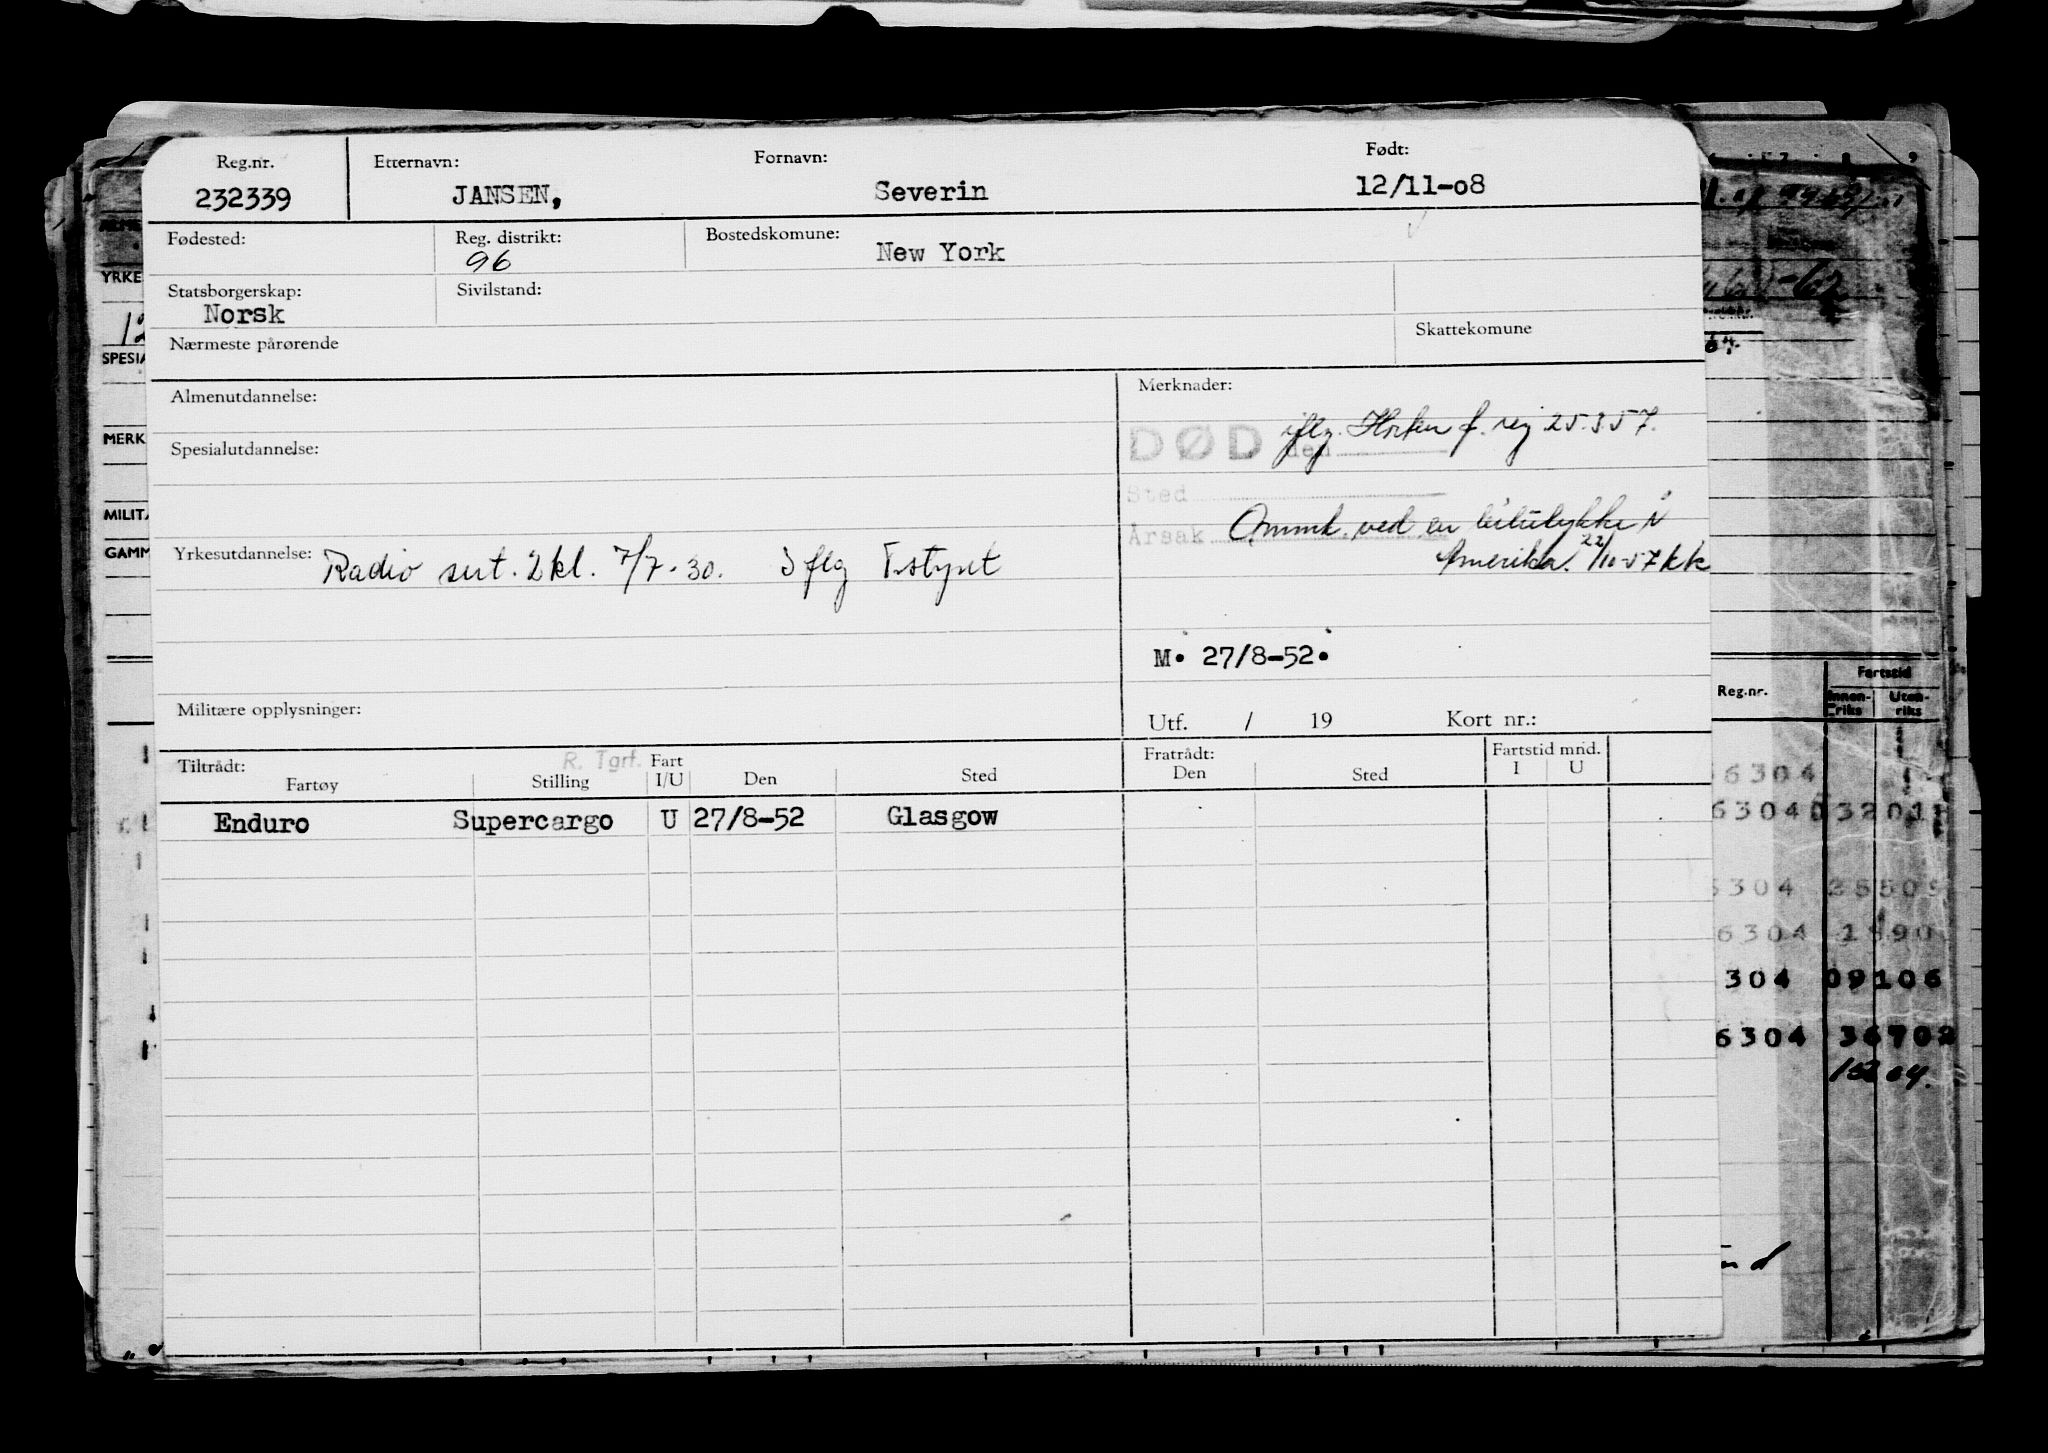 Reg.nr. Etternavn: Fornavn: Født:
232339 JANSEN, Severin 12/11-08
Fødested: Reg. distrikt: Bostedskomune:
96 New York
Statsborgerskap: Sivilstand:
Norsk
Nærmeste pårørende Skattekomune
Almenutdannelse: Merknader:
DØD den iflg. Horten f. reg 25.3.57.
Spesialutdannelse:
Sted
Årsak Omk. ved en bilulykke i
Amerika. 22/10-57 kk
Yrkesutdannelse: Radio sert. 2 kl. 7/7-30. Iflg T.styret
M. 27/8-52.
Militære opplysninger: Utf. / 19 Kort nr.:
Tiltrådt: R. Tgrf. Fart Fratrådt: Fartstid mnd.
Fartøy Stilling I/U Den Sted Den Sted I U
Enduro Supercargo U 27/8-52 Glasgow
YRKE
SPESIA
MERK
MILITÆ
GAMM
Fartstid
Reg.nr. Innen-riks Uten-riks
6304
6304
6304
6304
304 09106
6304 36702